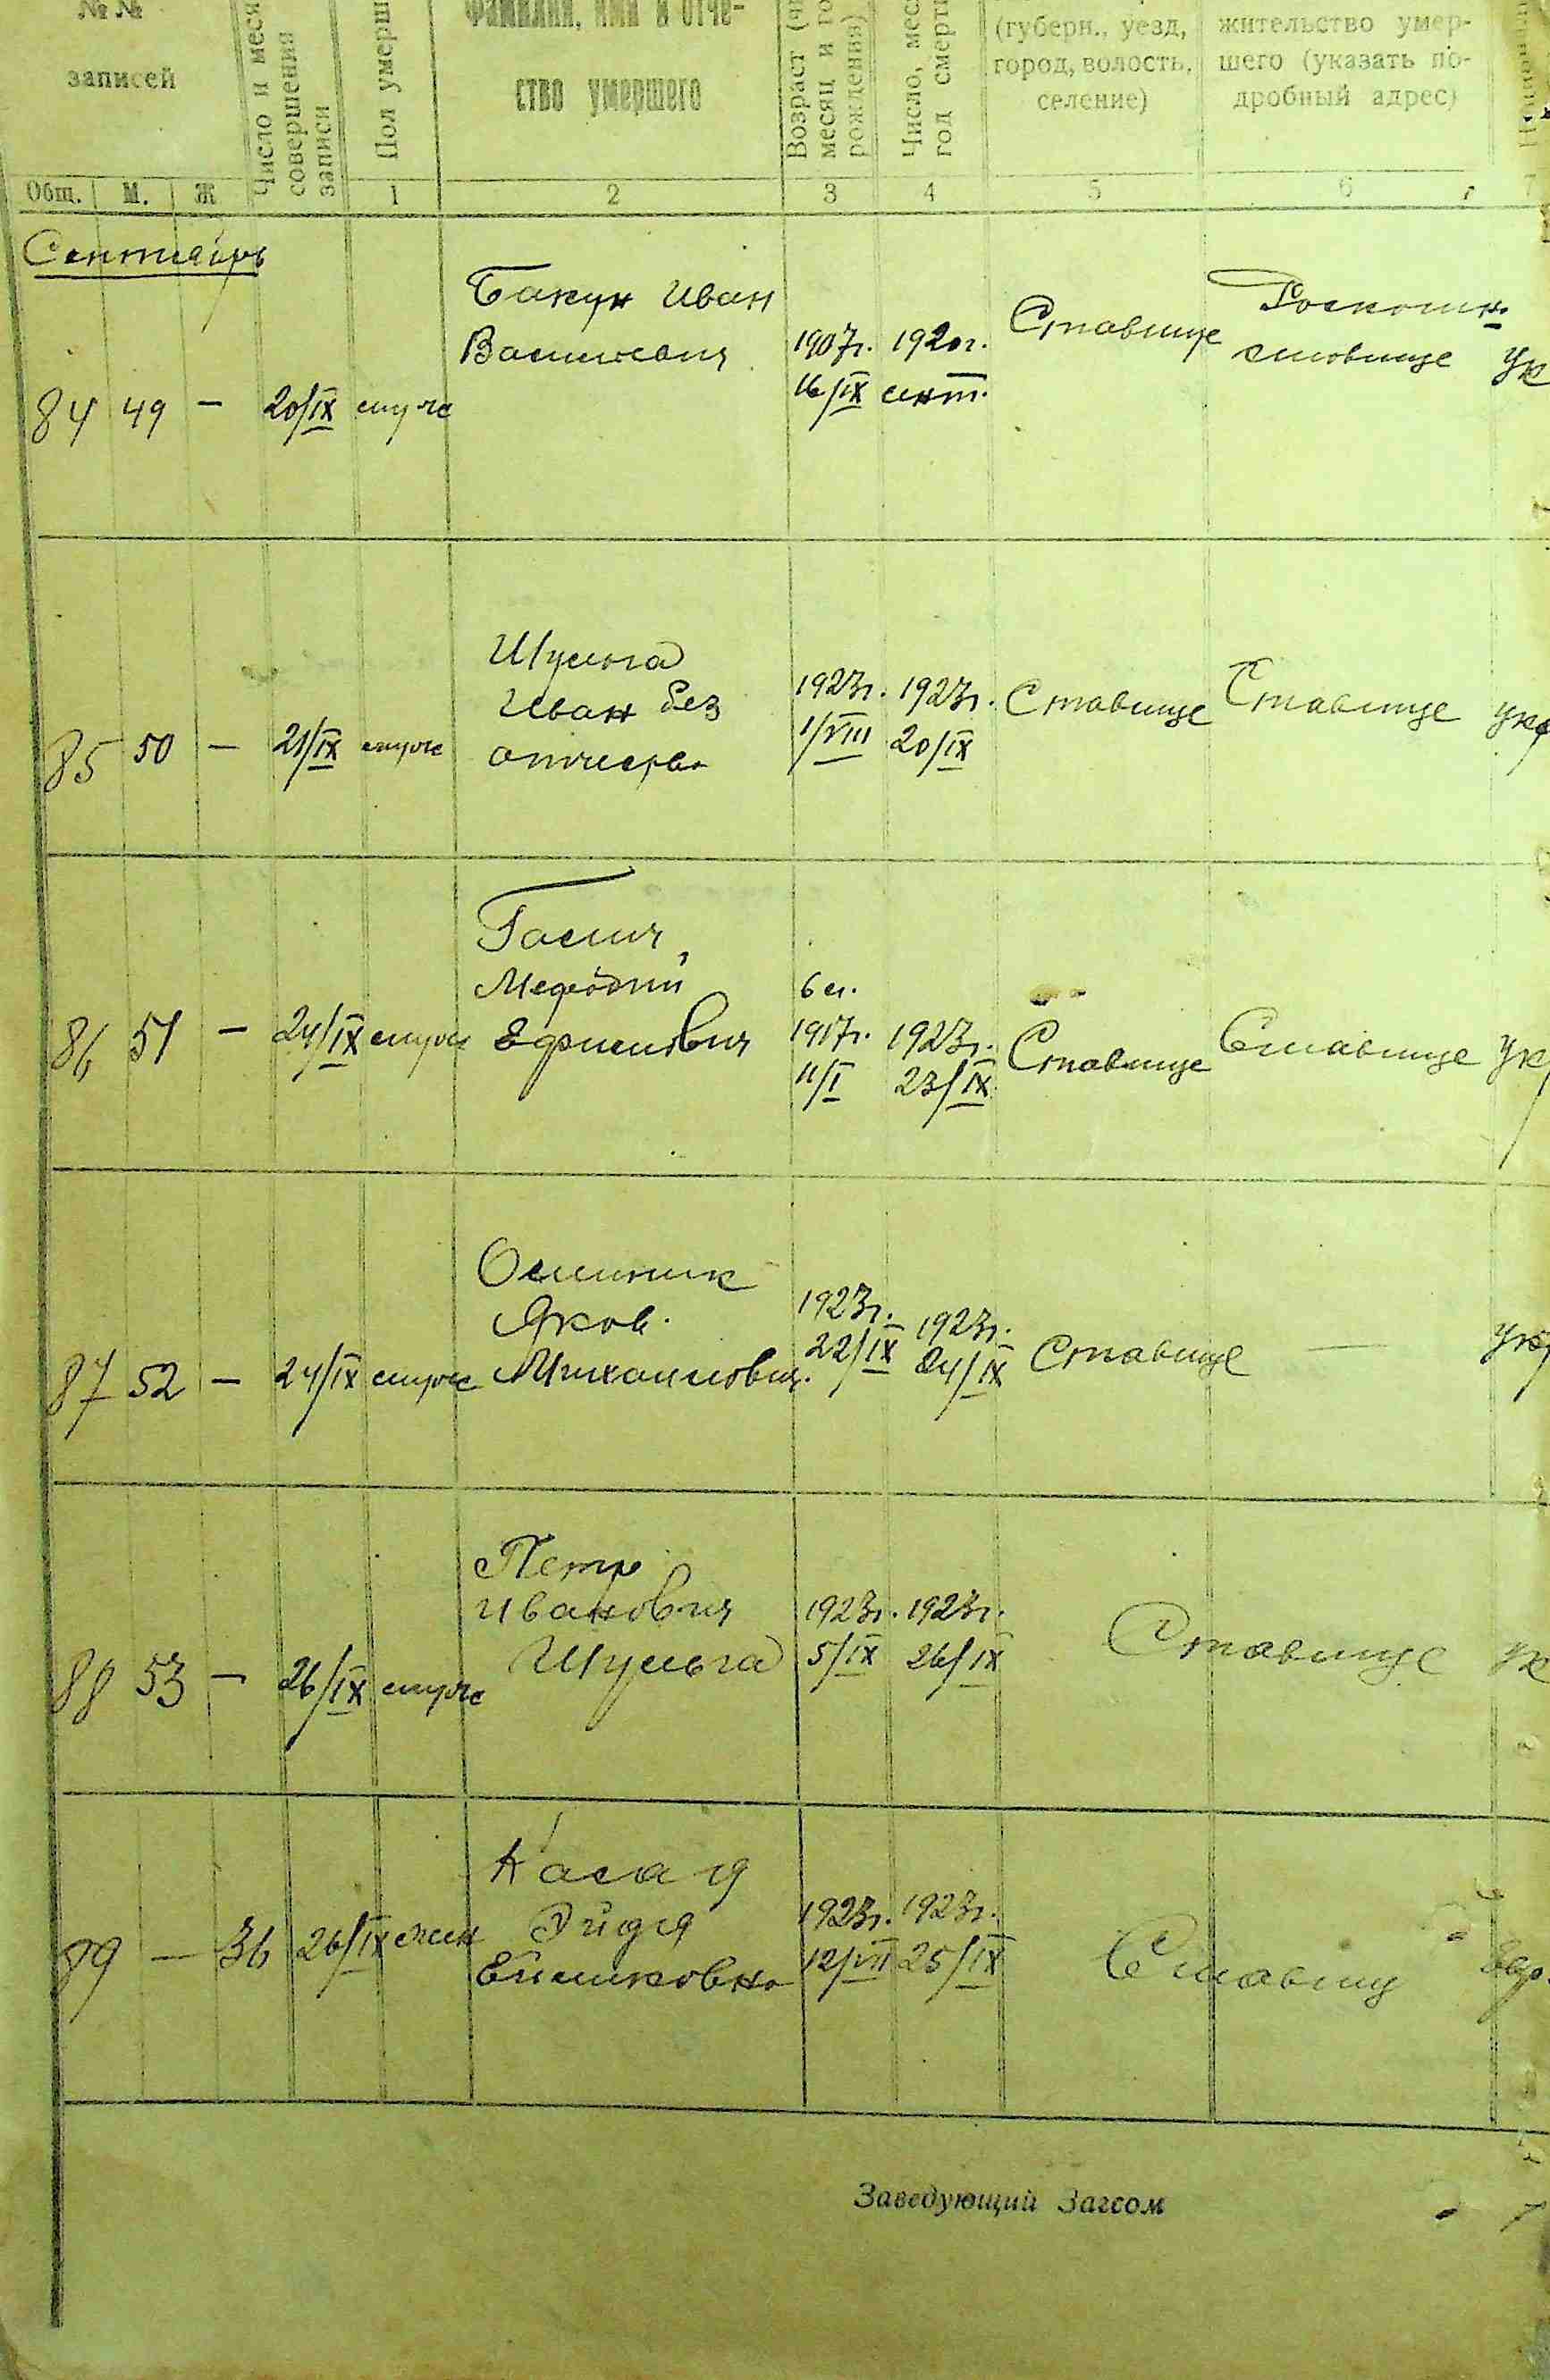 №№
записей
Число и меся
совершения
записи
Пол умерш
Фамилия, имя и отче-
ство умершего
Возраст (чи
месяц и го
рождения)
Число, мес
год смерт
(губерн., уезд,
город, волость,
селение)
жительство умер-
шего (указать по-
дробный адрес)
Общ. М. Ж 1 2 3 4 5 6 7
Сентябрь
Бакун Иван
Васильевич
1907г. 1920г.
16/IX сент.
Ставище
84 49 — 20/IX муж
Ук
Шульга
Иван без
отчества
1923г. 1923г.
1/VIII 20/IX
Ставище Ставище укр
85 50 — 21/IX муж
Мефодий
Ефимович
6 л.
1917г. 1923г.
11/I 23/IX
Ставище Ставище Ук
86 51 — 24/IX муж
Олийник
Яков
Михайлович
1923г. 1923г.
22/IX 24/IX
Ставище — укр
87 52 — 24/IX муж
Петр
Иванович
Шульга
1923г. 1923г.
5/IX 26/IX
Ставище ук
88 53 — 26/IX муж
Эйдя
1923г. 1923г.
12/VII 25/IX
Ставищ
89 — 36 26/IX жен
Заведующий Загсом